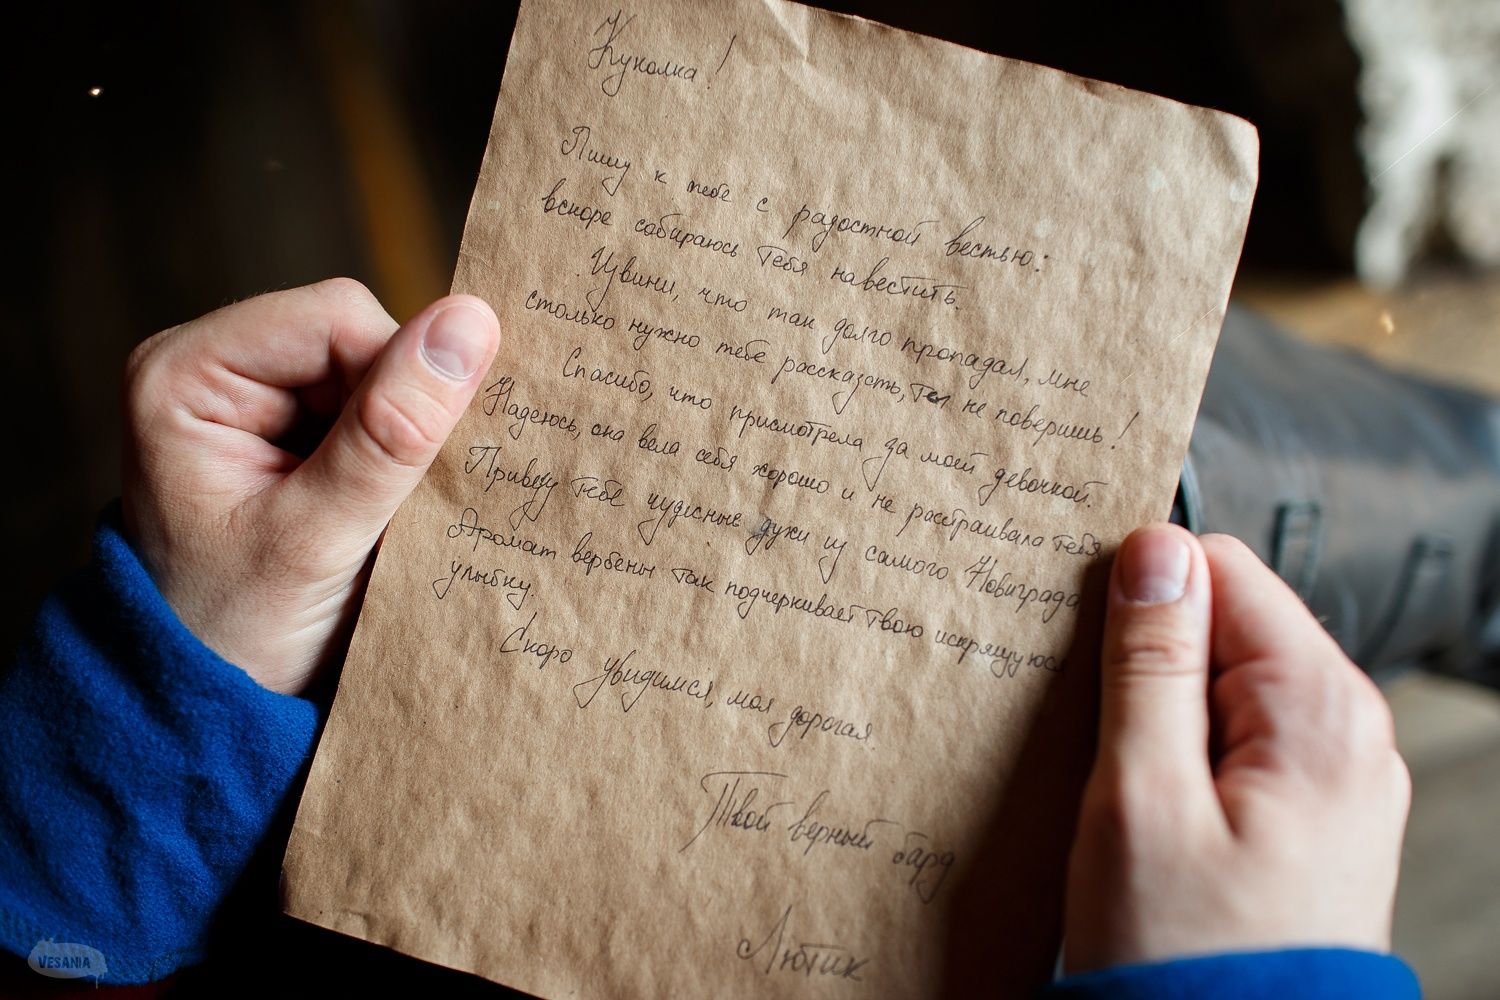 Куколка!
Пишу к тебе с радостной вестью:
вскоре собираюсь тебя навестить.
Извини, что так долго пропадал, мне
столько нужно тебе рассказать, ты не поверишь!
Спасибо, что присмотрела за моей девочкой.
Надеюсь, она вела себя хорошо и не расстраивала тебя
Привезу тебе чудесные духи из самого Новиграда
Аромат вербены так подчеркивает твою искрящуюся
улыбку.
Скоро увидимся, моя дорогая.
Твой верный бард
Лютик
VESANIA